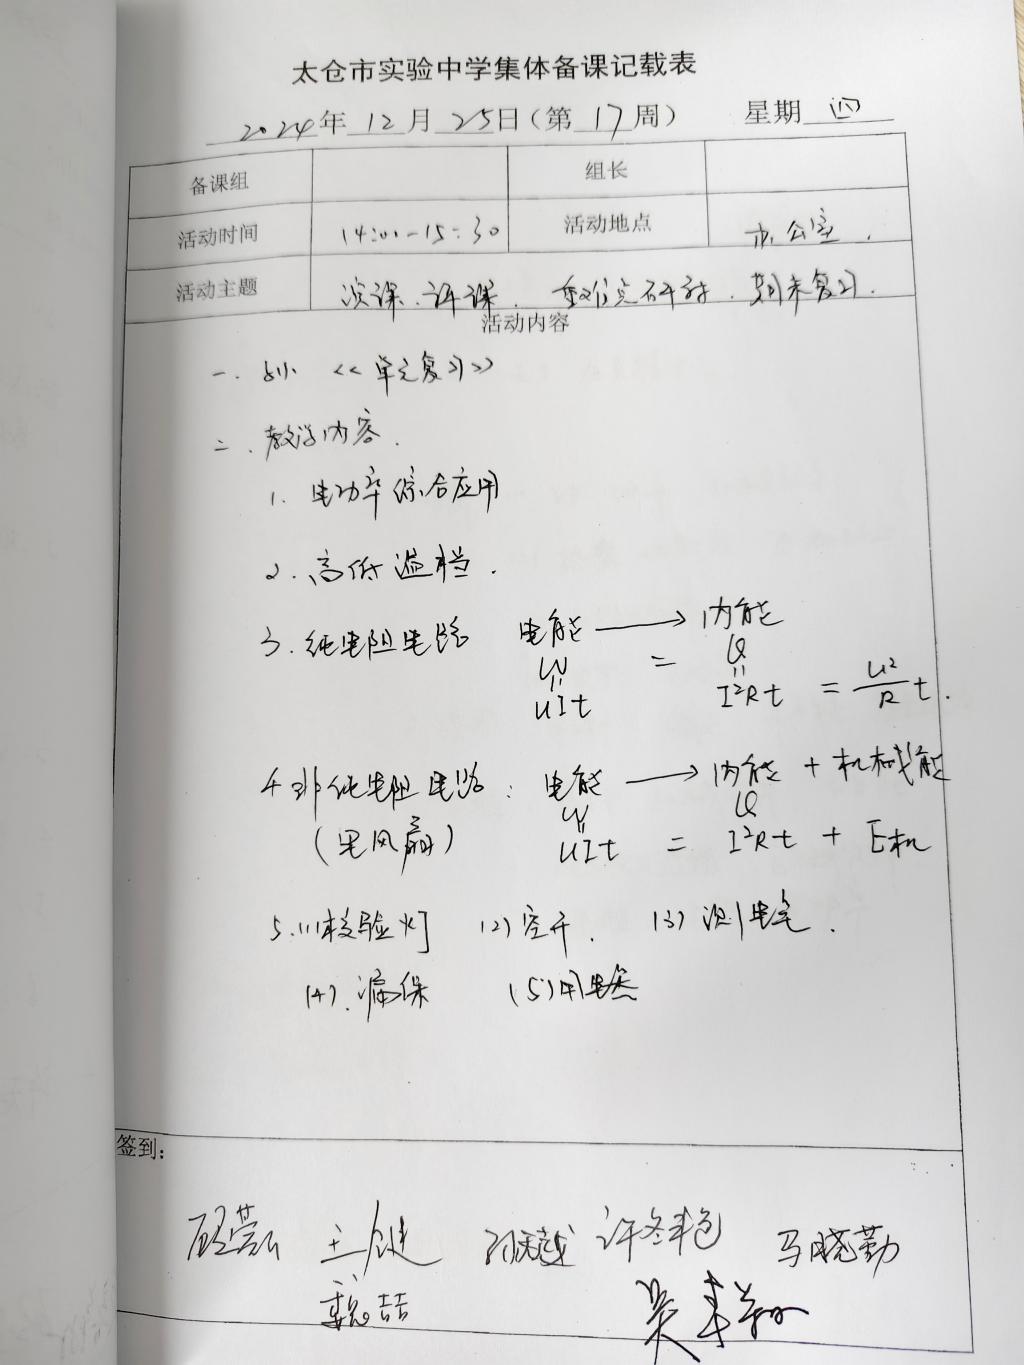 太仓市实验中学集体备课记载表
2024年 12月 25日（第 17周） 星期 四
备课组 组长
活动时间 14:00-15:30 活动地点 办公室.
活动主题 评课. 重难点研讨. 期末复习.
活动内容
一. <<单元复习>>
二. 教学内容.
1. 电功率综合应用
2. 高低温档.
3. 纯电阻电路 电能 → 内能
W = Q
UIt I²Rt = U²/R t.
4 非纯电阻电路: 电能 → 内能 + 机械能
W Q
(电风扇) UIt = I²Rt + E机
5. (1)校验灯 (2)空开. (3)测电笔.
(4). 漏保 (5)用电器
签到:
王健 马晓勤
魏喆